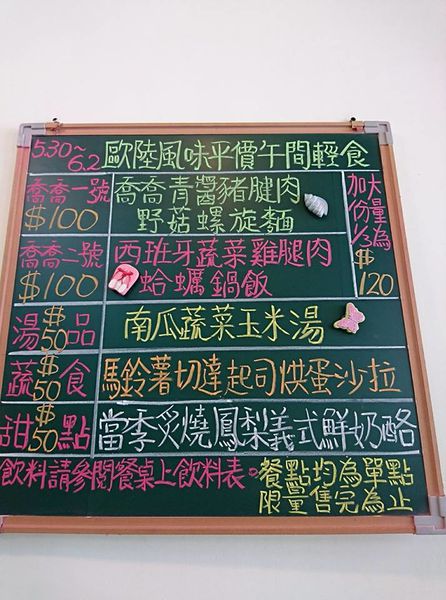 5.30~6.2 歐陸風味平價午間輕食
喬喬一號 $100
喬喬青醬豬腱肉
野菇螺旋麵
喬喬一號 $100
西班牙蔬菜雞腿肉
蛤蠣鍋飯
加大份量為1/3 $120
湯品 $50
南瓜蔬菜玉米湯
蔬食 $50
馬鈴薯切達起司烘蛋沙拉
甜點 $50
當季炙燒鳳梨義式鮮奶酪
飲料請參閱餐桌上飲料表。
餐點均為單點
限量售完為止